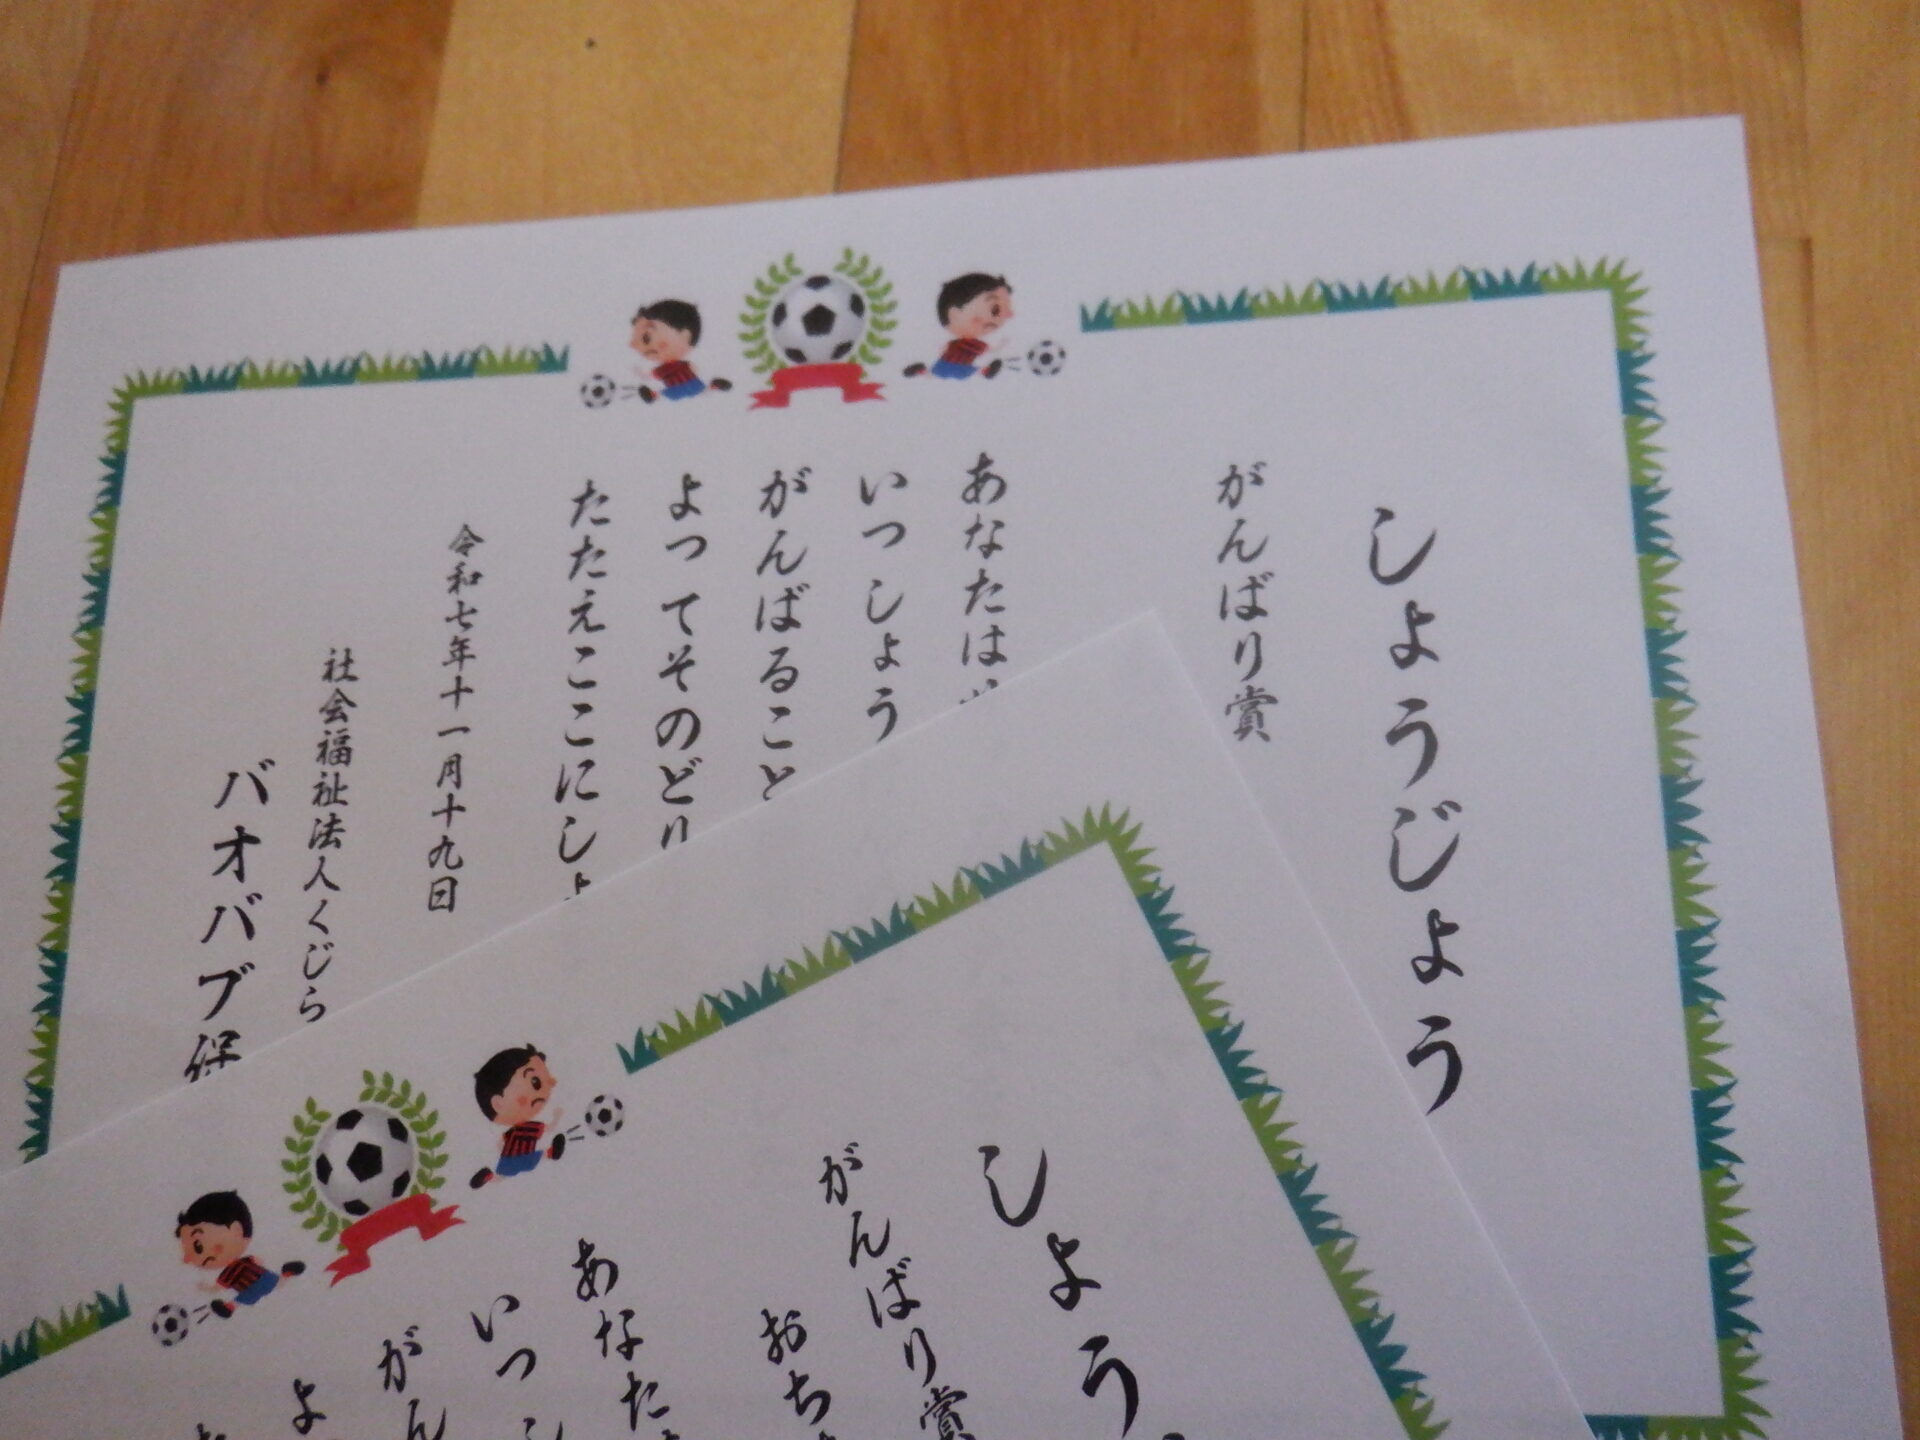 しょうじょう
がんばり賞
あなたは
いっしょう
がんばること
よってそのどり
たたえここにしょ
令和七年十一月十九日
社会福祉法人くじら
バオバブ保
しょう
がんばり賞
おち
あなた
いっし
がん
よ